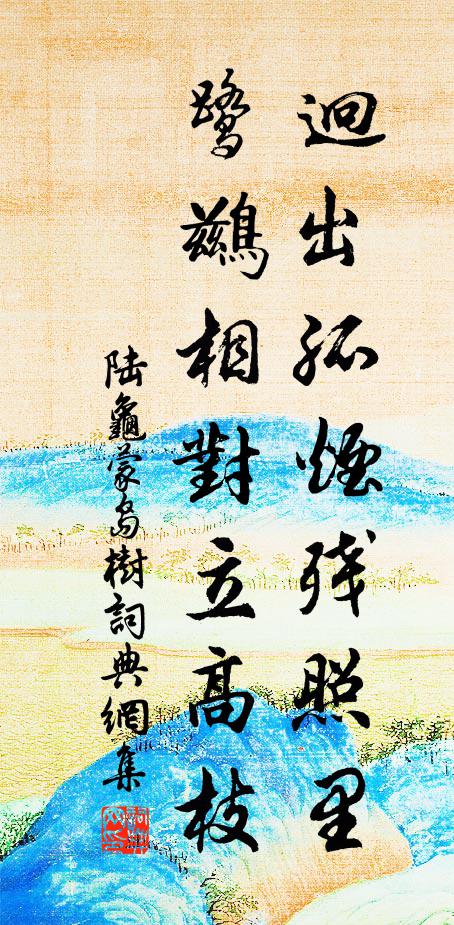 迥出孤煙残照里
鷺鷀相對立高枝
陆龜蒙島樹詞典網集